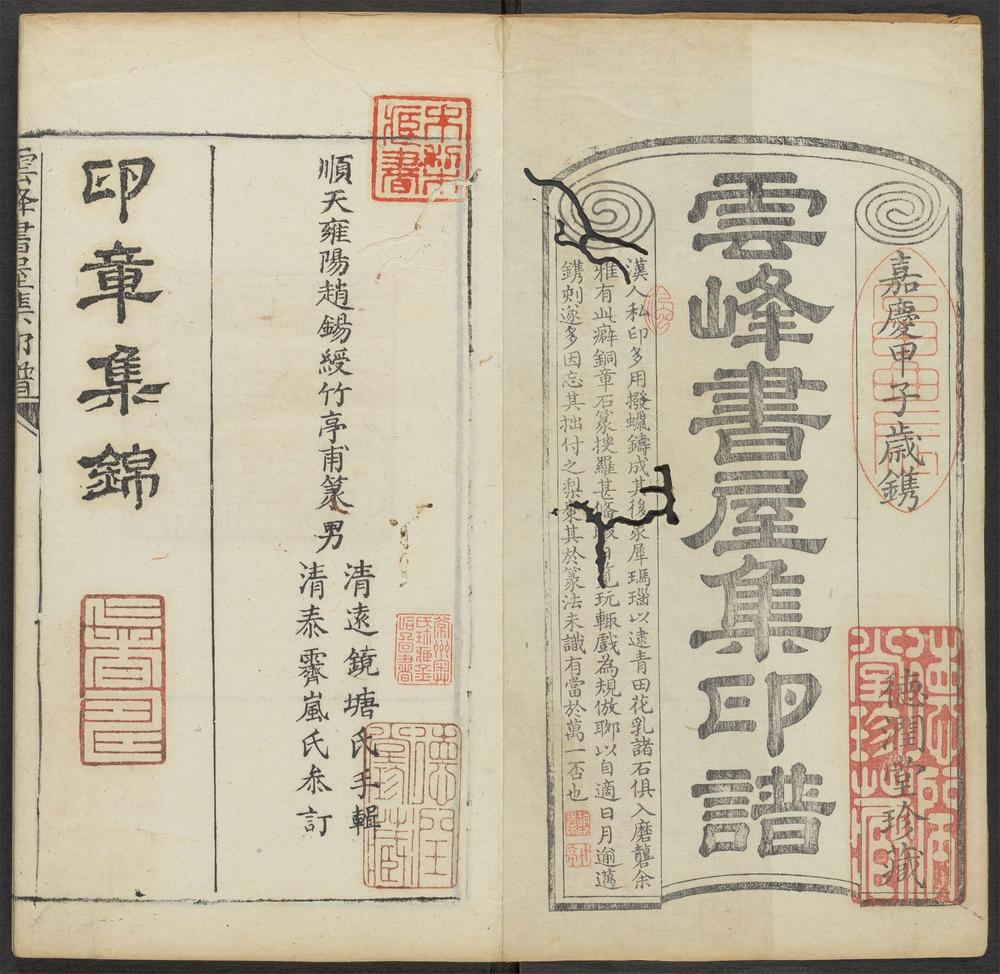 嘉慶甲子歲鐫
德潤堂珍藏
雲峰書屋集印譜
漢人私印多用撥蠟鑄成其後象犀瑪瑙以逮青田花乳諸石俱入磨礱余
雅有此癖銅章石篆搜羅甚 玩輒戲為規倣聊以自適日月逾邁
鐫刻遂多因忘其拙付之梨棗其於篆法未識有當於萬一否也
順天雍陽趙錫綬竹亭甫篆男
清遠鏡塘氏手輯
清泰霽嵐氏叅訂
印章集錦
雲峰書屋集印譜
德潤堂藏